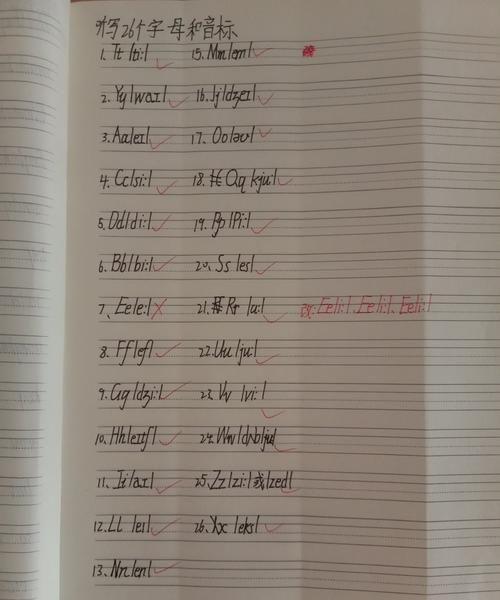 听写26个字母和音标
1. Tt |ti:|
2. Yy |waɪ|
3. Aa |eɪ|
4. Cc |si:|
5. Dd |di:|
6. Bb |bi:|
7. Ee |e:|
8. Ff |ef|
9. Gg |dʒi:|
10. Hh |eɪtʃ|
11. Ii |aɪ|
12. LL |el|
13. Nn |en|
15. Mm |em|
16. Jj |dʒeɪ|
17. Oo |əʊ|
18. Qq kju:|
19. Pp |Pi:|
20. Ss |es|
21. Rr |a:|
改: Ee|i:|、Ee|i:|、Ee|i:|
22. Uu |ju:|
23. Vv |vi:|
24. Ww |dʌblju|
25. Zz |zi:| 或 |zed|
26. Xx |eks|